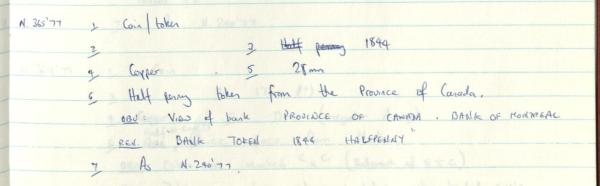 N.365'77 1 Coin/token
2 3 Half penny 1844
4 Copper 5 28mm
6 Half penny token from the Province of Canada.
OBV: View of bank PROVINCE OF CANADA. BANK OF MONTREAL
REV. BANK TOKEN 1844 HALFPENNY"
7 As N.240'77.